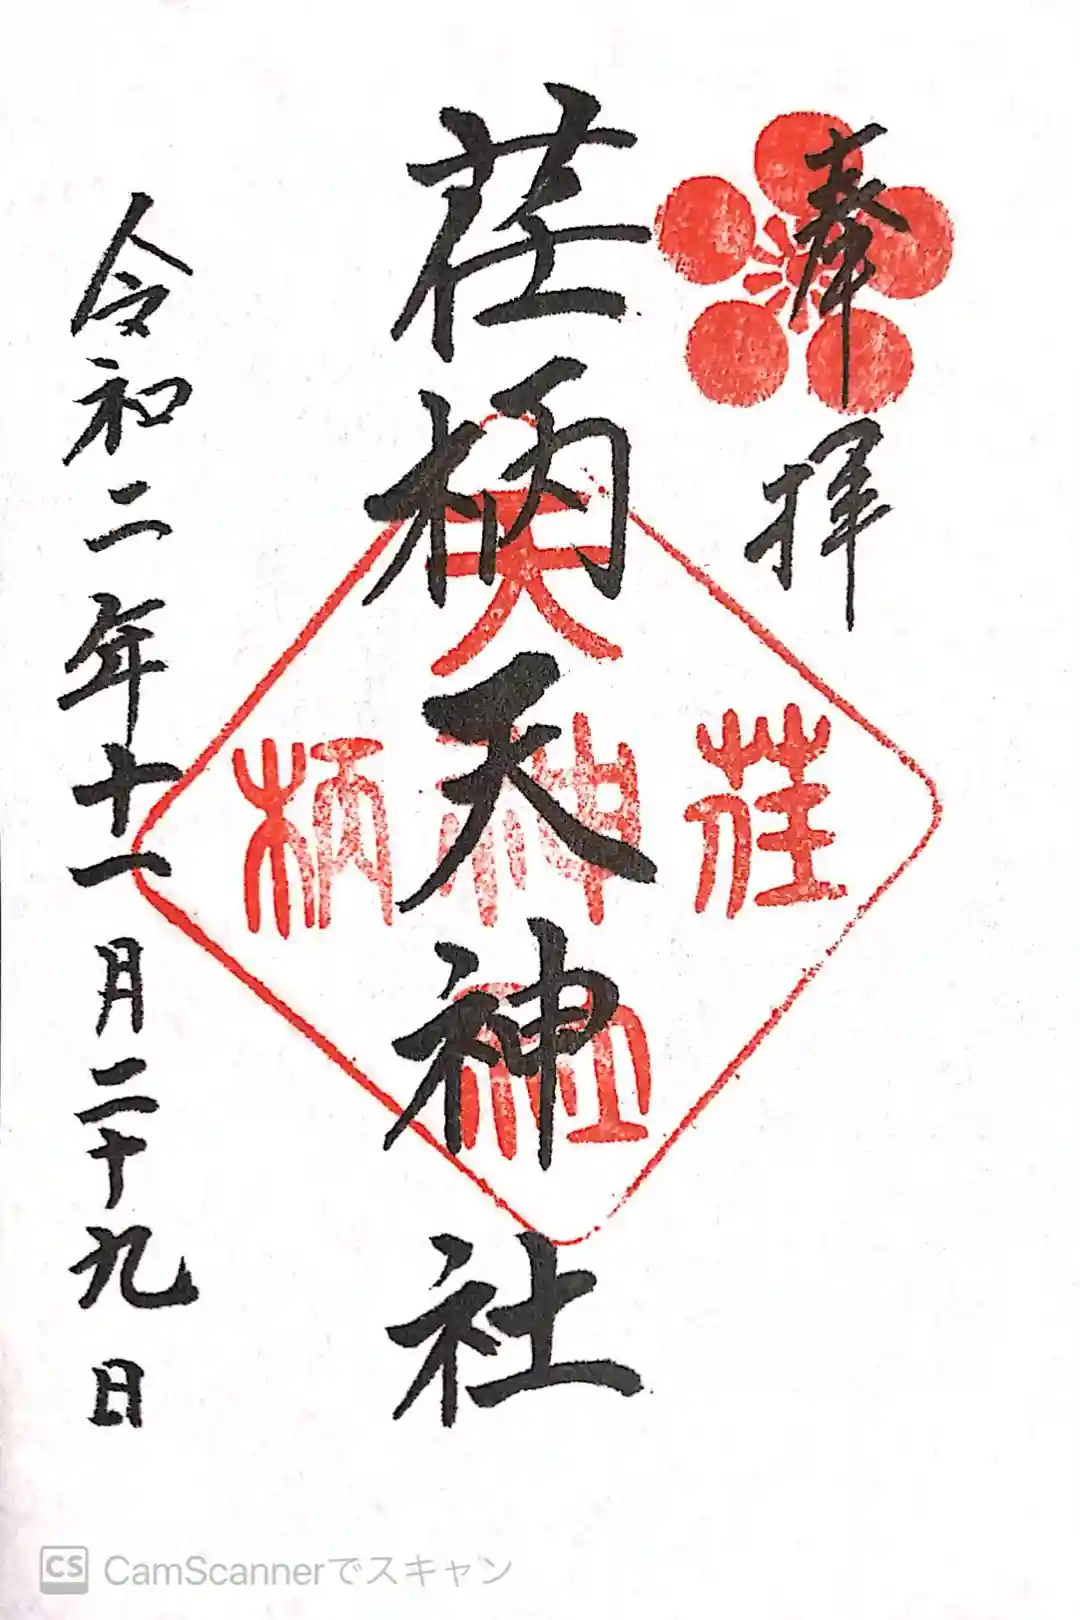 奉拝
荏柄天神社
荏
柄
天
神
社
令和二年十一月二十九日
CS CamScannerでスキャン